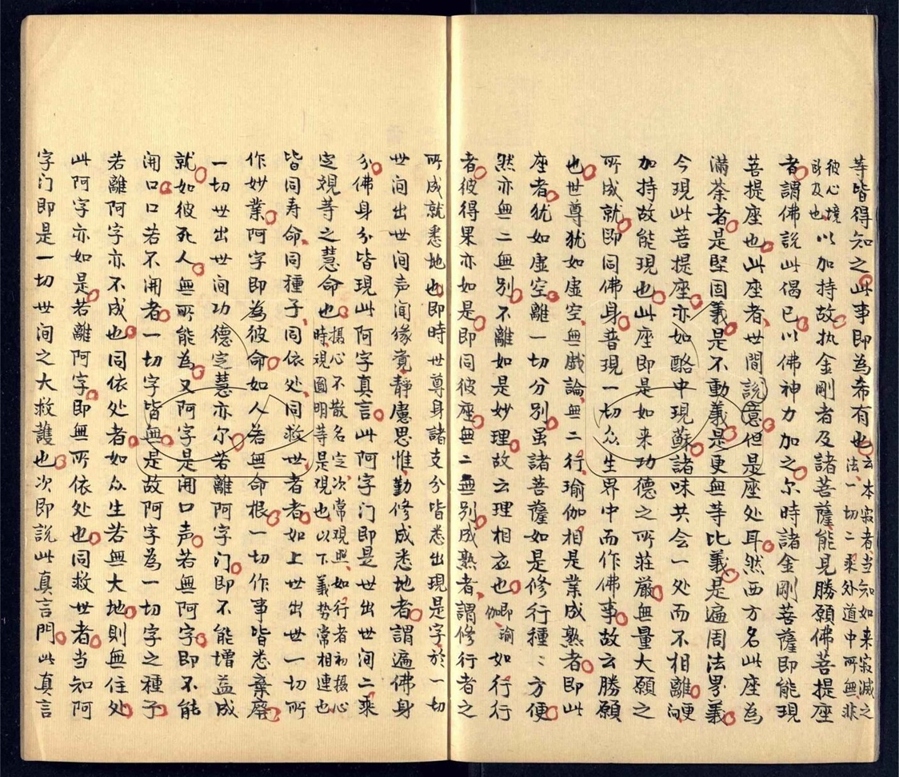 等皆得知之此事即為希有也云本寂者当知如来寂滅之法一切二乘外道中所無非
彼心境所及也以加持故执金剛者及諸菩薩能見勝願佛菩提座
者謂佛說此偈已以佛神力加之尔時諸金剛菩薩即能現
菩提座也此座者世間說意但是座处耳然西方名此座為
滿荼者是堅固義是不動義是更無等比義是遍周法界義
今現此菩提座亦如酪中現蘇諸味共会一处而不相離便
加持故能現也此座即是如来功德之所莊嚴無量大願之
所成就即同佛身普現一切众生界中而作佛事故云勝願
也世尊犹如虛空無戲論無二行瑜伽相是業成熟者即此
座者犹如虛空離一切分別虽諸菩薩如是修行種〻方便
然亦無二無別不離如是妙理故云理相应也即瑜伽如行行
者彼得果亦如是即同彼座無二無別成熟者謂修行者之
所成就悉地也即時世尊身諸支分皆悉出現是字於一切
世间出世间声闻缘覚静慮思惟勤修成悉地者謂遍佛身
分佛身分皆現此阿字真言此阿字门即是世出世间二乘
定視等之慧命也攝心不散名定次常現照如行者初攝心時現圓明等是現也以下義勢常相連也
皆同寿命同種子同依处同救世者者如上世出世一切所
作妙業阿字即為彼命如人若無命根一切作事皆悉棄廢
一切世出世间功德定慧亦尔若離阿字门即不能增益成
就如彼死人無所能為又阿字是開口声若無阿字即不能
開口口若不開者一切字皆無是故阿字為一切字之種子
若離阿字亦不成也同依处者如众生若無大地則無住处
此阿字亦如是若離阿字即無所依处也同救世者当知阿
字门即是一切世间之大救護也次即說此真言門此真言